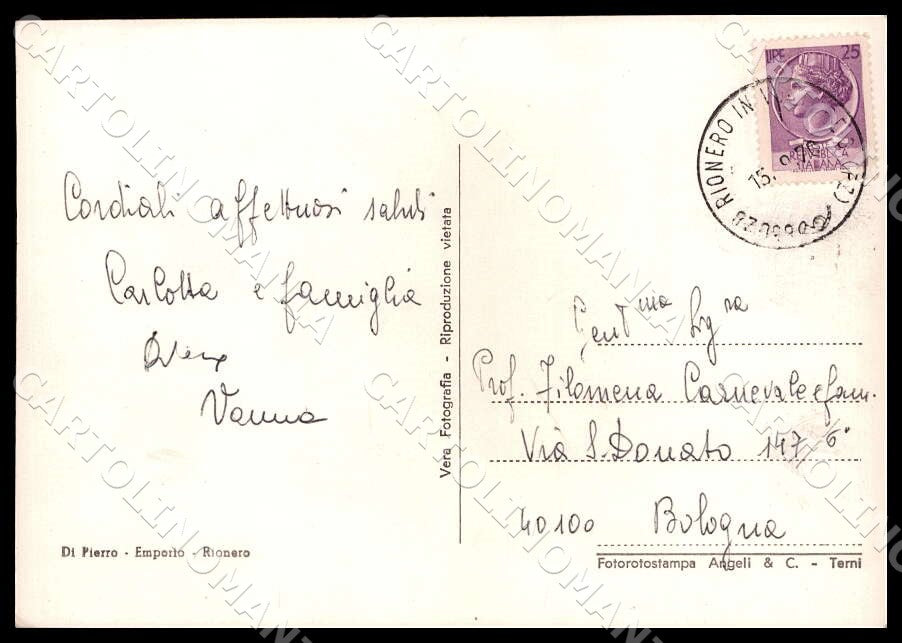 Cordiali affettuosi saluti
Carlotta e famiglia
Vanna
Di Pierro - Emporio - Rionero
Vera Fotografia - Riproduzione vietata
LIRE 25
REPUBBLICA
ITALIANA
RIONERO IN
15.
(PZ)
Gent.ma Sig.ra
Prof. Filomena Carnevale e fam.
Via S. Donato 147 6°
40100 Bologna
Fotorotostampa Angeli & C. - Terni
CARTOLINOMANIA